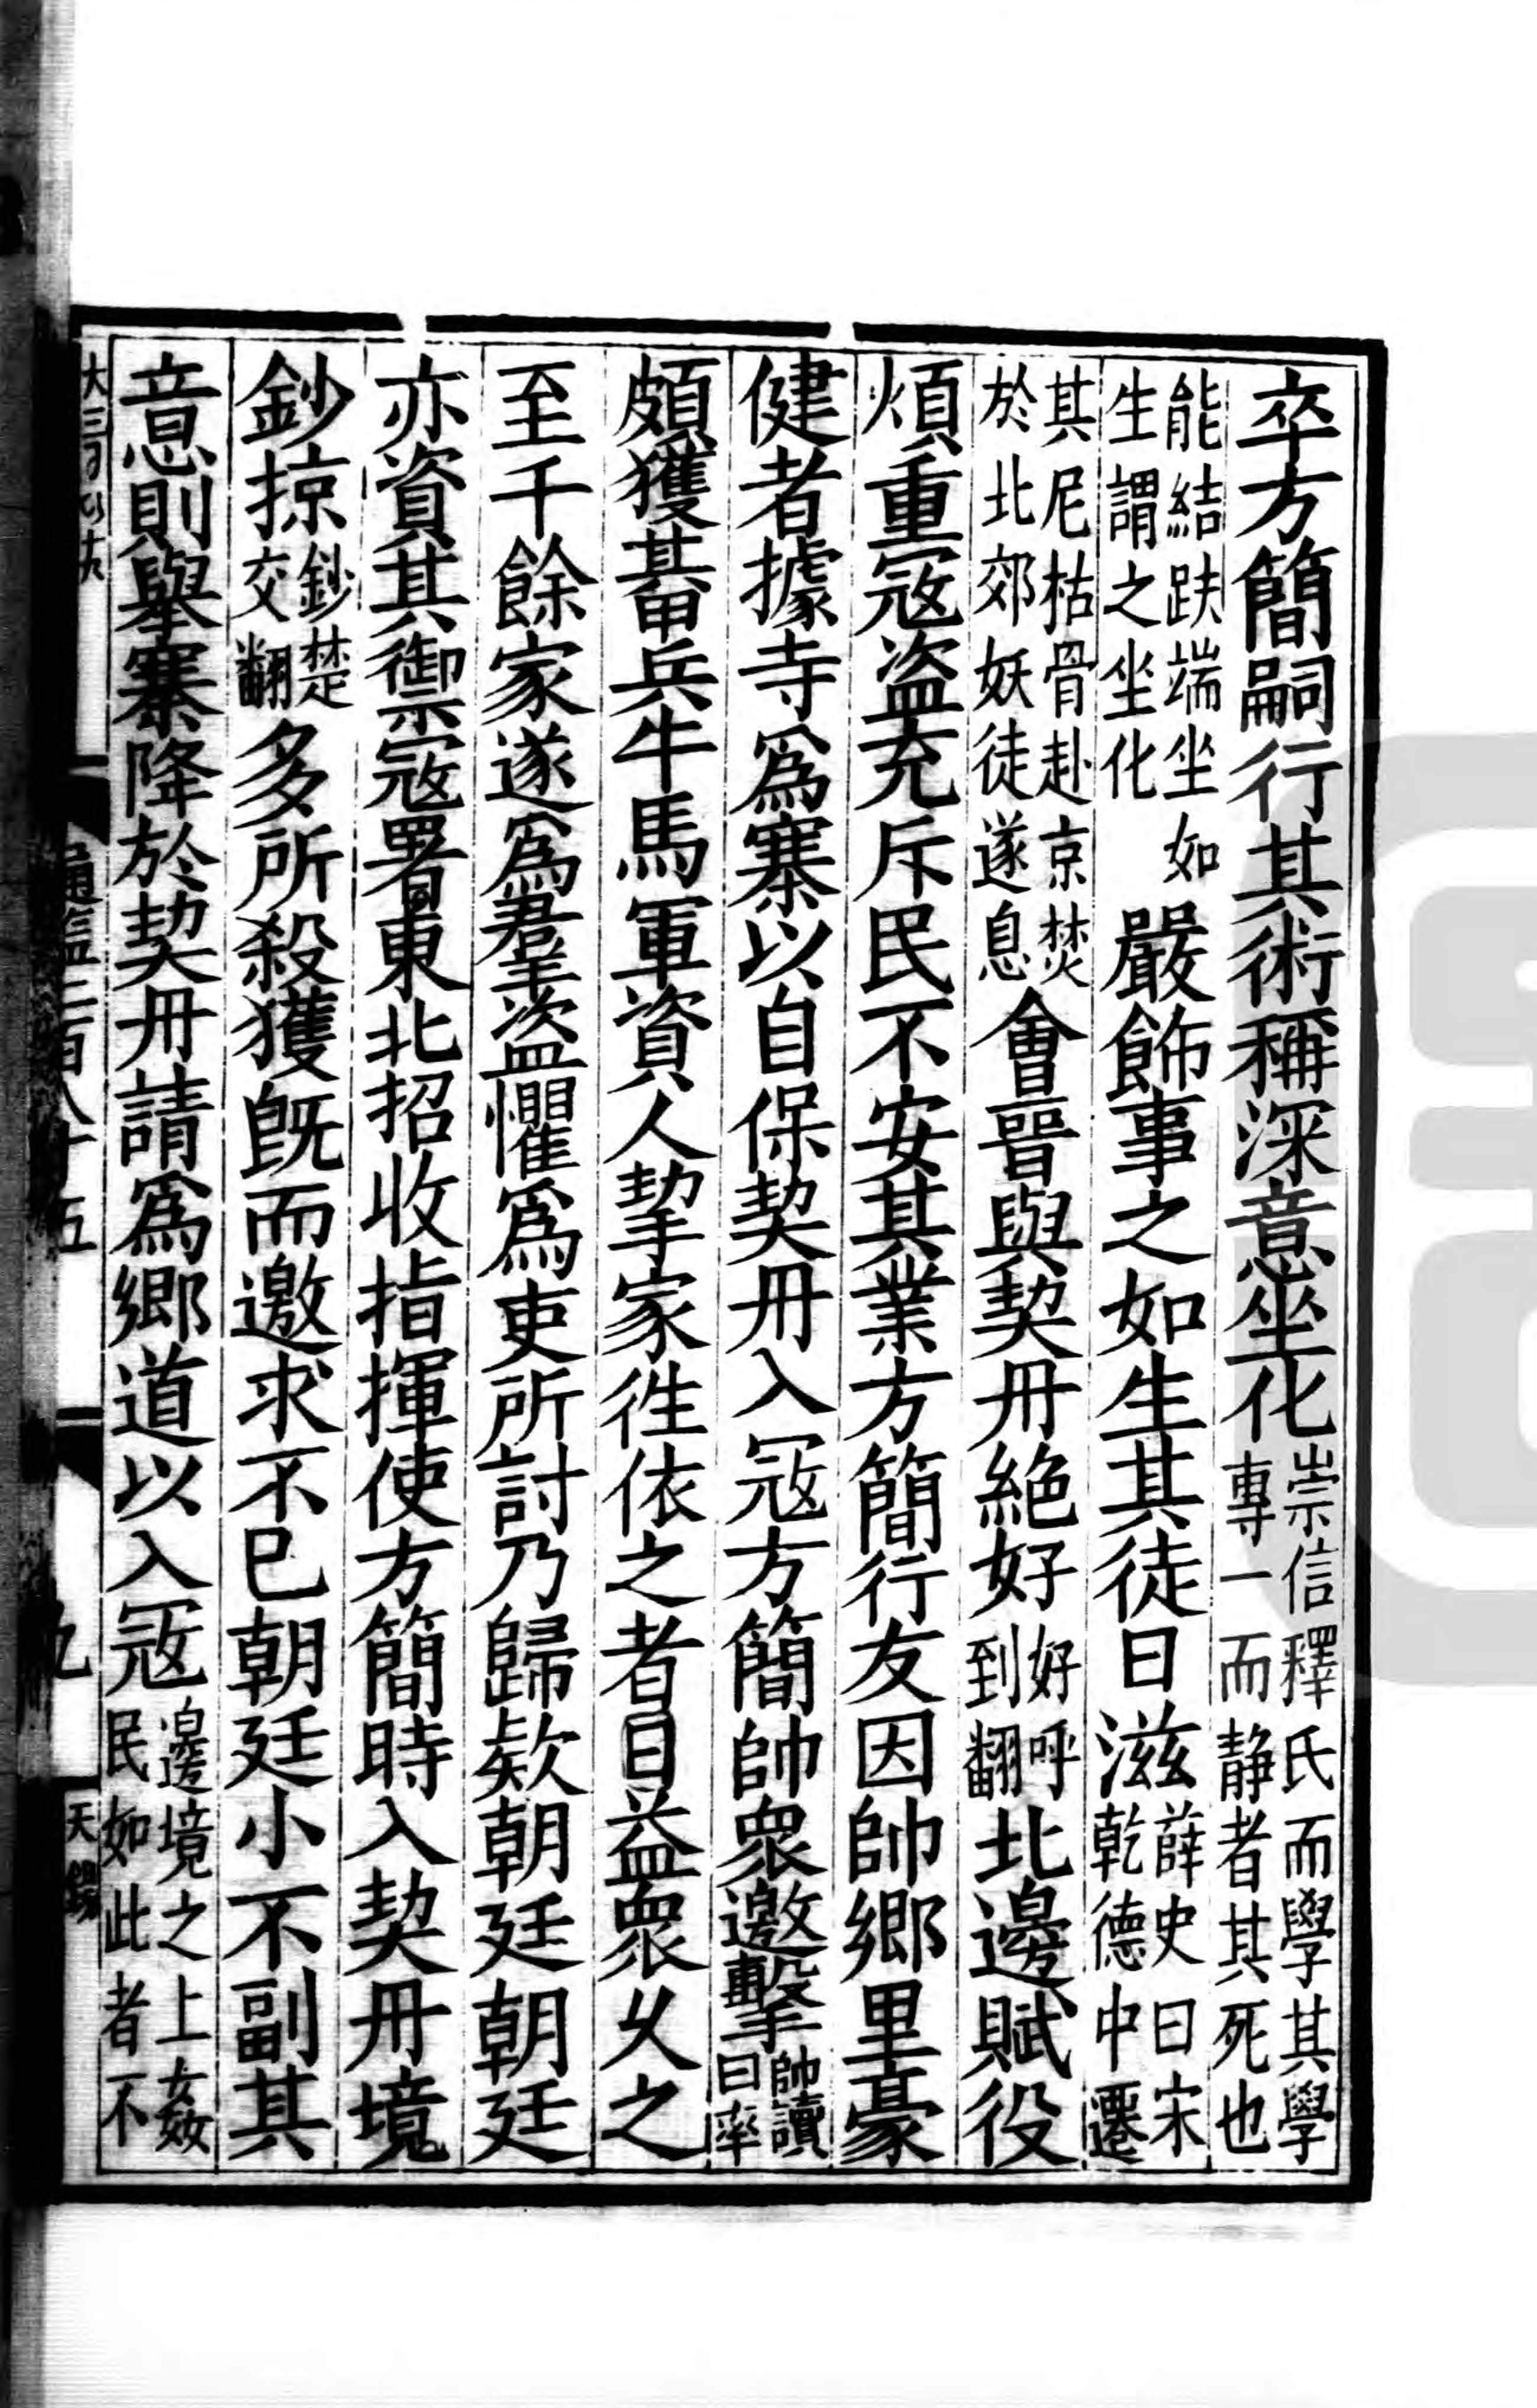 卒方簡嗣行其術稱深意坐化崇信釋氏而學其學專一而静者其死也
能結趺端坐如生謂之坐化嚴飾事之如生其徒日滋薛史曰宋乾德中遷
其尼枯骨赴京焚於北郊妖徒遂息會晉與契丹絶好好呼到翻北邊賦役
煩重寇盗充斥民不安其業方簡行友因帥鄉里豪
健者據寺爲寨以自保契丹入寇方簡帥衆邀擊帥讀曰率
頗獲其甲兵牛馬軍資人挈家往依之者日益衆久之
至千餘家遂爲羣盗懼爲吏所討乃歸欵朝廷朝廷
亦資其禦寇署東北招收指揮使方簡時入契丹境
鈔掠鈔楚交翻多所殺獲旣而邀求不已朝廷小不副其
意則舉寨降於契丹請爲鄉道以入寇邊境之上姦民如此者不
通鑑二百八十五
九
天錫